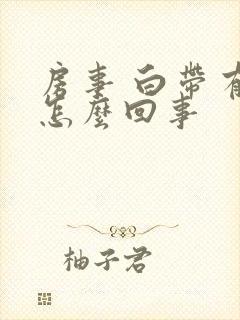 房事 白帶 有
怎麼回事
柚子君